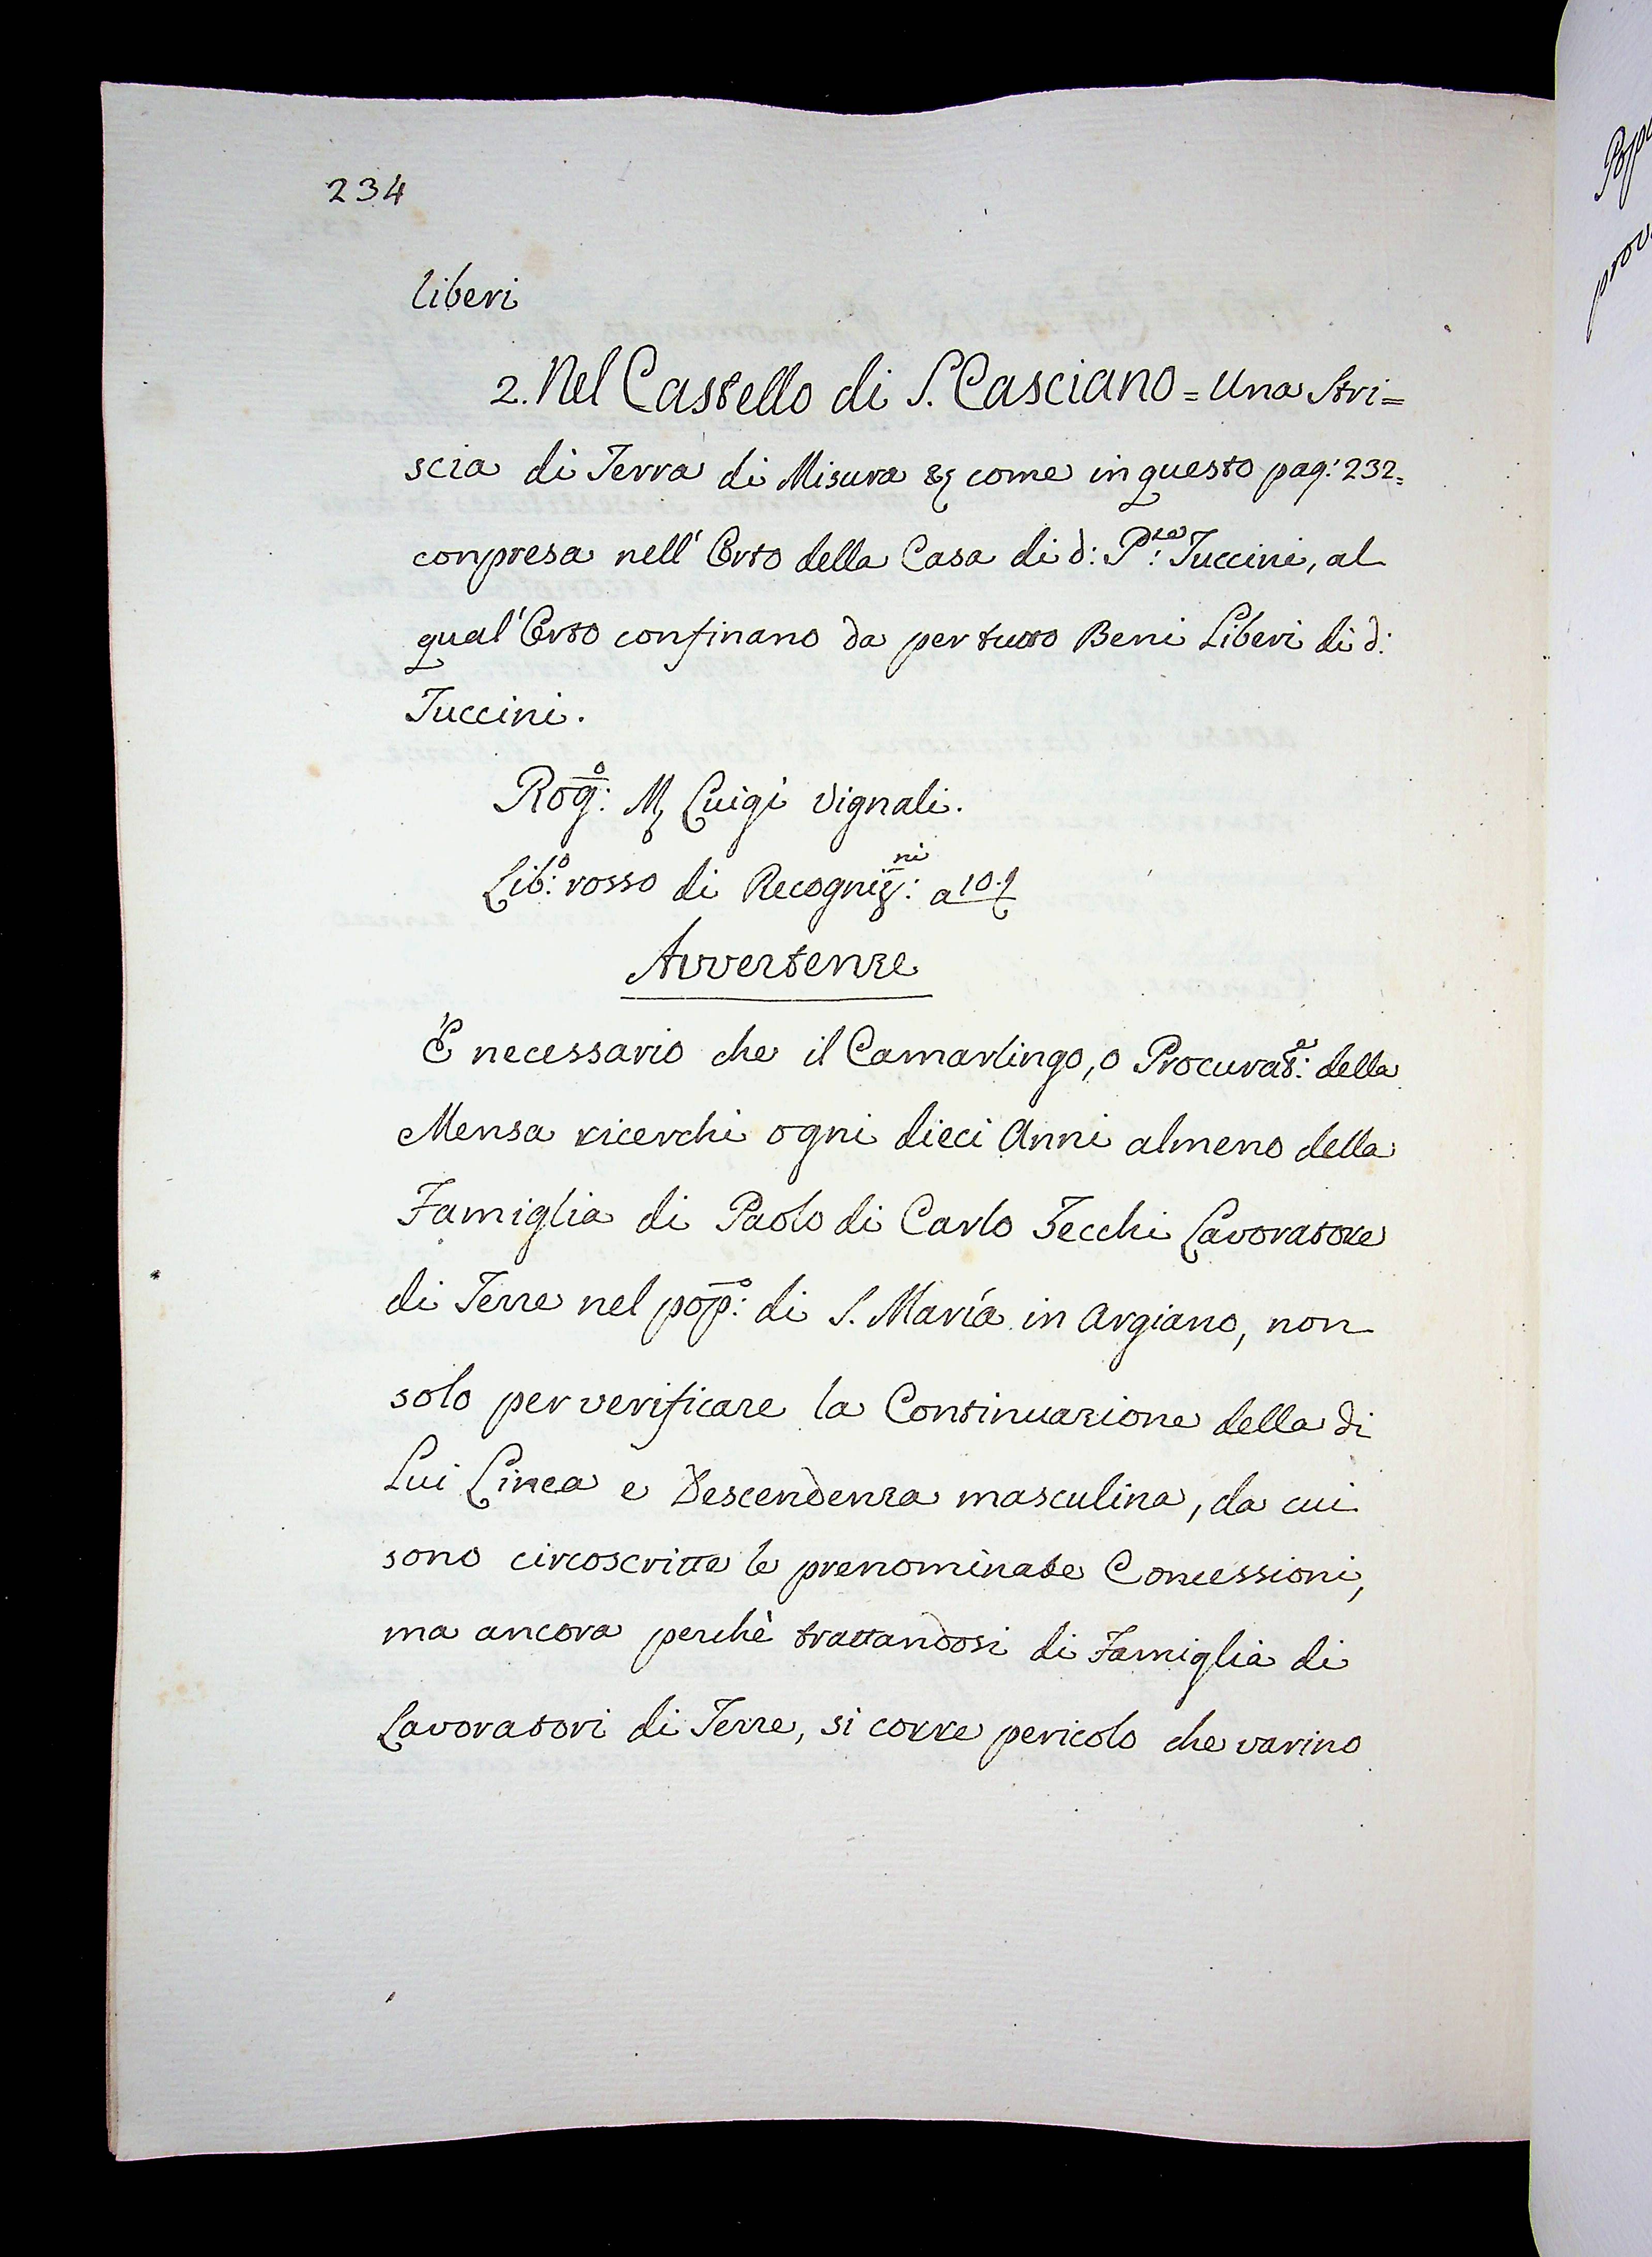 234
liberi
2. Nel Castello di S. Casciano = Una Stri=
scia di Terra di Misura &c come in questo pag: 232=
conpresa nell'Orto della Casa di d: P:re Tuccini, al
qual'Orto confinano da per tutto Beni Liberi di d:
Tuccini.
Rog:o M Luigi Vignali.
Lib:o rosso di Recogniz:ni a 10.9
Avvertenze
È necessario che il Camarlingo, o Procurat:e della
Mensa ricerchi ogni dieci Anni almeno della
Famiglia di Paolo di Carlo Tecchi Lavoratore
di Terre nel pop:o di S. Maria in Argiano, non
solo per verificare la Continuazione della di
Lui Linea e Descendenza masculina, da cui
sono circoscritte le prenominate Concessioni,
ma ancora perchè trattandosi di Famiglia di
Lavoratori di Terre, si corre pericolo che varino
prov